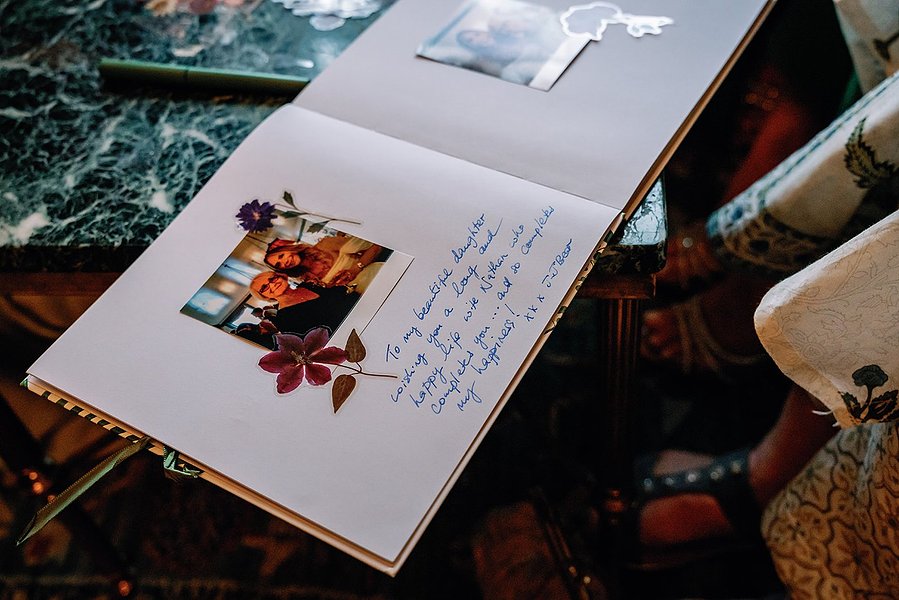 To my beautiful daughter
wishing you a long and
happy life with Nathan who
completes you ... and so completes
my happiness!
x x x JJBear